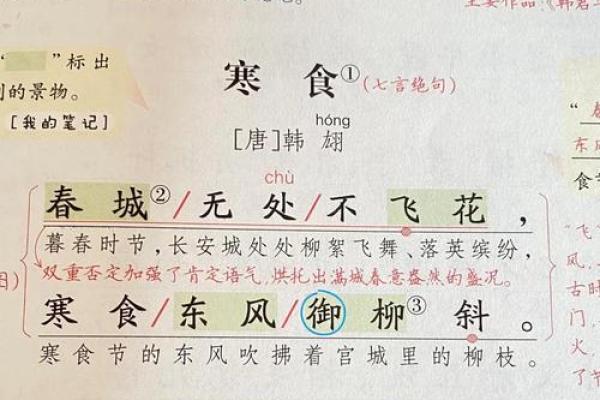 主要作品《韩君
“ ”标出
的景物。
[我的笔记]
寒食①(七言绝句)
hóng
[唐]韩翃
chù
春城②/无处/不飞花，
暮春时节,长安城处处柳絮飞舞、落英缤纷,
双重否定加强了肯定语气,烘托出满城春意盎然的盛况。
寒食/东风/御柳③斜。
寒食节的东风吹拂着宫城里的柳枝。
图)
“春
东风
食节
“飞
风,
古时
门,
火,
了节